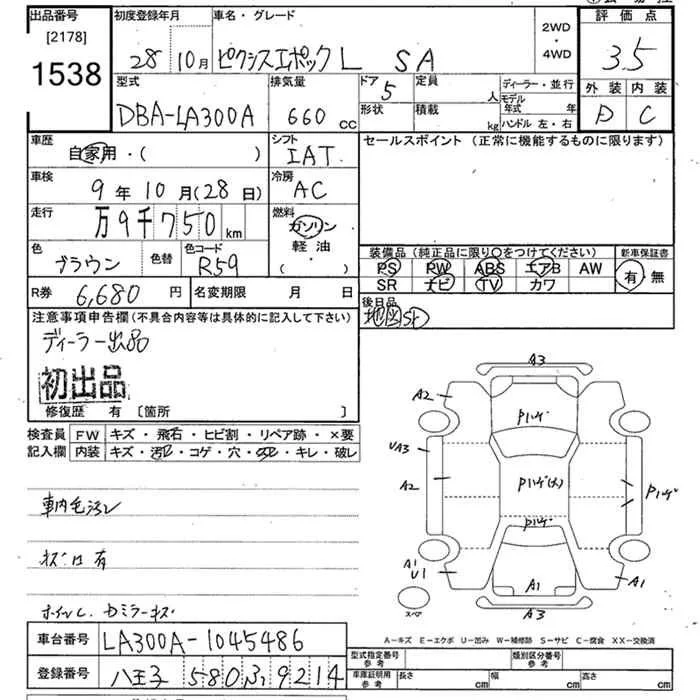 出品番号 [2178] 1538
初度登録年月 28 10月
車名・グレード ピクシスエポック L SA
2WD ・ 4WD
評価点 3.5
外装 D 内装 C
型式 DBA-LA300A
排気量 660 cc
ドア 5
形状
定員 人
積載 kg
ディーラー・並行
モデル年式 年
ハンドル 左・右
車歴 自家用・( )
シフト IAT
セールスポイント (正常に機能するものに限ります)
車検 9年 10月(28日)
冷房 AC
走行 万9千750 km
燃料 ガソリン 軽油 ・( )
色 ブラウン 色替
色コード R59
装備品 (純正品に限り○をつけてください)
PS PW ABS エアB AW
SR ナビ TV カワ
新車保証書 有 無
R券 6,680円
名変期限 月 日
後日品
注意事項申告欄(不具合内容等は具体的に記入して下さい)
ディーラー出品
初出品
修復歴 有 [箇所 ]
検査員記入欄
FW キズ・飛石・ヒビ割・リペア跡・×要
内装 キズ・汚レ・コゲ・穴・・キレ・破レ
車内毛汚レ
有
A3
A2
Pハゲ
UA3
A2
Pハゲ(大)
Pハゲ
Pハゲ
A1
U1
A1
A1
スペア
A3
A-キズ E-エクボ U-凹み W-補修跡 S-サビ C-腐食 XX-交換済
車台番号 LA300A-1045486
登録番号 八王子 580 ふ 9214
型式指定番号 参考
類別区分番号 参考
車庫証明用 参考 長さ cm 幅 cm 高さ cm